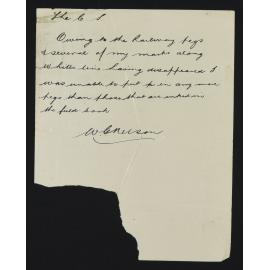 The C S
Owing to the Railway pegs
& several of my marks along
White line having disappeared I
was unable to put in any more
pegs than those that are entered in
the field book